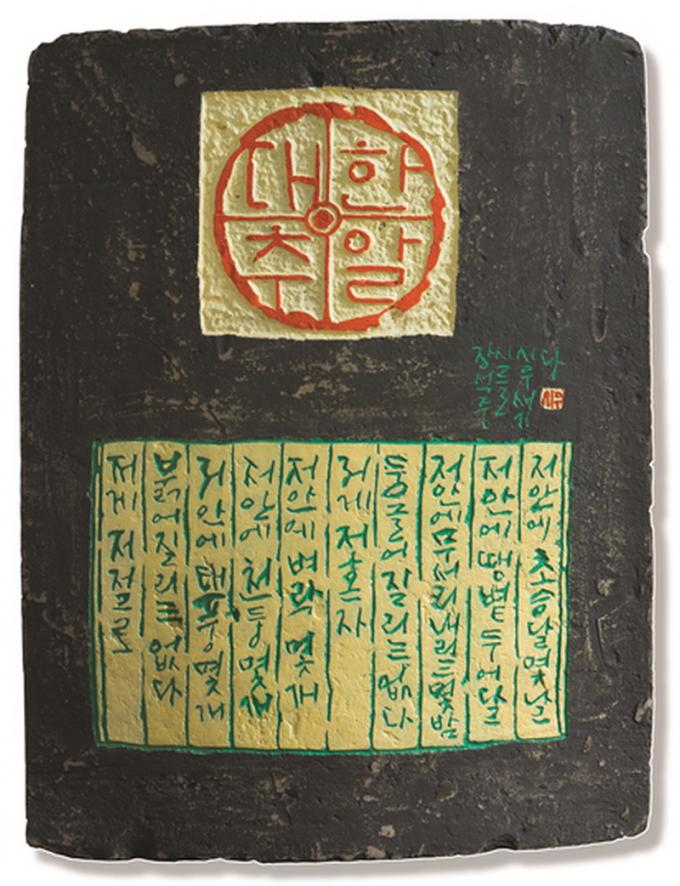 대추
한알
장석주
시우 새기
다
저게 저절로
붉어질 리는 없다
저 안에 태풍 몇 개
저 안에 천둥 몇 개
저 안에 벼락 몇 개
저게 저 혼자
둥글어질 리는 없다
저 안에 무서리 내리는 몇 밤
저 안에 땡볕 두어 달
저 안에 초승달 몇 날